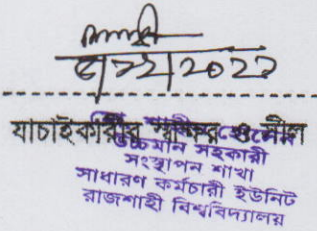 ২০২১
যাচাইকারীর স্বাক্ষর ও সীল
উচ্চমান সহকারী
সংস্থাপন শাখা
সাধারণ কর্মচারী ইউনিট
রাজশাহী বিশ্ববিদ্যালয়